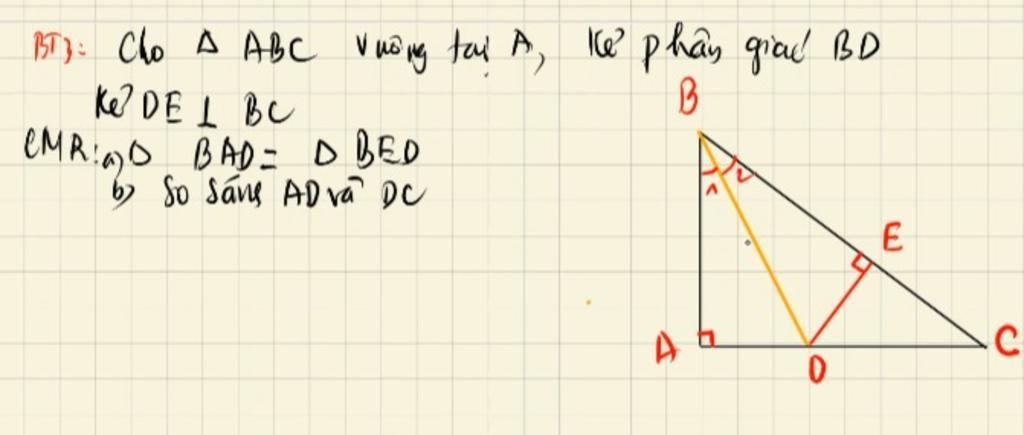 BT3: Cho Δ ABC vuông tại A, Kẻ phân giác BD
Kẻ DE ⊥ BC
CMR: a) Δ BAD = Δ BED
b) So sáng AD và DC
B
1 2
E
A
D
C